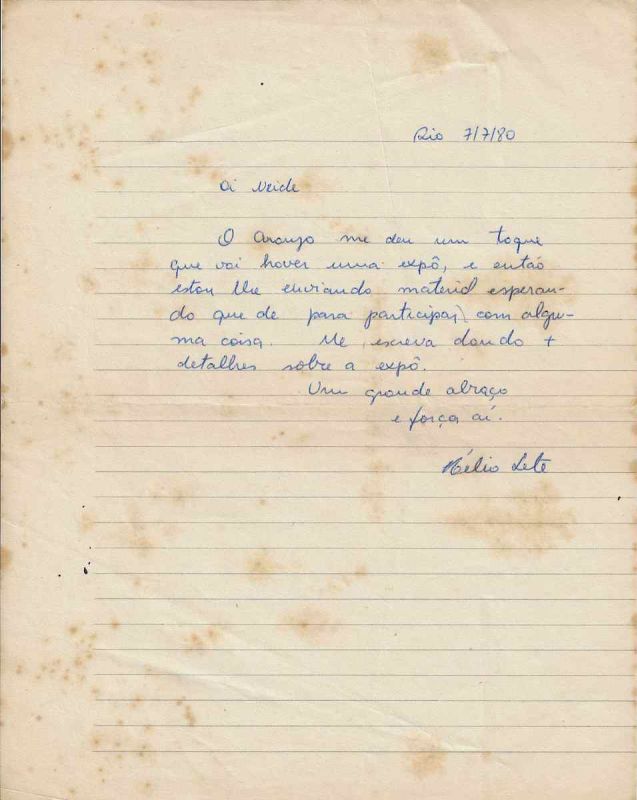 Rio 7/7/80
Oi Neide
O Araujo me deu um toque
que vai haver uma expô, e então
estou lhe enviando material esperan-
do que de para participar, com algu-
ma coisa. Me escreva dando +
detalhes sobre a expô.
Um grande abraço
e força aí.
Hélio Lete